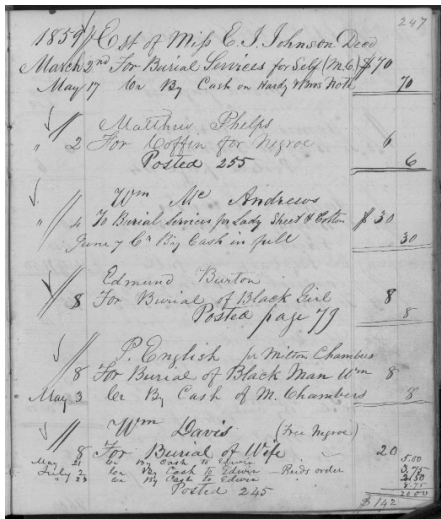 247
1859 Est of Miss E. J. Johnson Decd
March 2nd For Burial Services for Self (M.C.) $70
May 17 Cr By Cash on Hardy & Bros Note 70
Matthew Phelps
" 2 For Coffin for Negroe 6
Posted 255 6
Wm McAndrews
" 4 To Burial Services for Lady Sheet & Cotton $30
June 7 Cr By Cash in full 30
Edmund Burton
8 For Burial of Black Girl 8
Posted page 79 8
P. English for Milton Chambers
8 For Burial of Black Man Wm 8
May 3 Cr By Cash of M. Chambers 8
Wm Davis (Free Negroe)
8 For Burial of Wife 20
May 21 Cr By Cash to Edwin 5.00
July 2 Cr By Cash to Edwin - Reids order 3.75
" 23 Cr By Cash to Edwin 2.50
8.75
Posted 245 20.00
$142